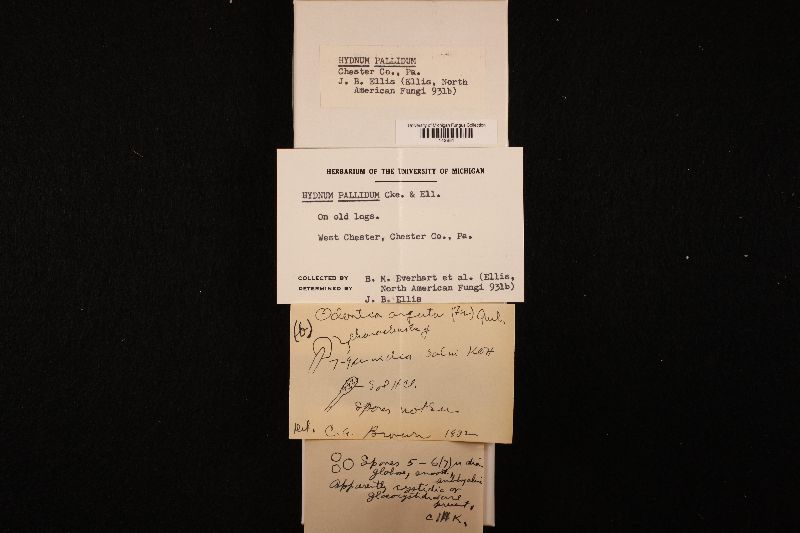 HYDNUM PALLIDUM
Chester Co., Pa.
J. B. Ellis (Ellis, North
American Fungi 931b)
University of Michigan Fungus Collection
HERBARIUM OF THE UNIVERSITY OF MICHIGAN
HYDNUM PALLIDUM Cke. & Ell.
On old logs.
West Chester, Chester Co., Pa.
COLLECTED BY B. M. Everhart et al. (Ellis,
DETERMINED BY North American Fungi 931b)
J. B. Ellis
Odontia arguta (Fr.) Quél.
(b)
sol in KOH
Sol HCl.
Spores not seen
Det. C.A. Brown 1932
Spores 5-6(7) µ dia
globose, smooth, subhyaline
Apparently cystidia or
gloeocystidia are
present.